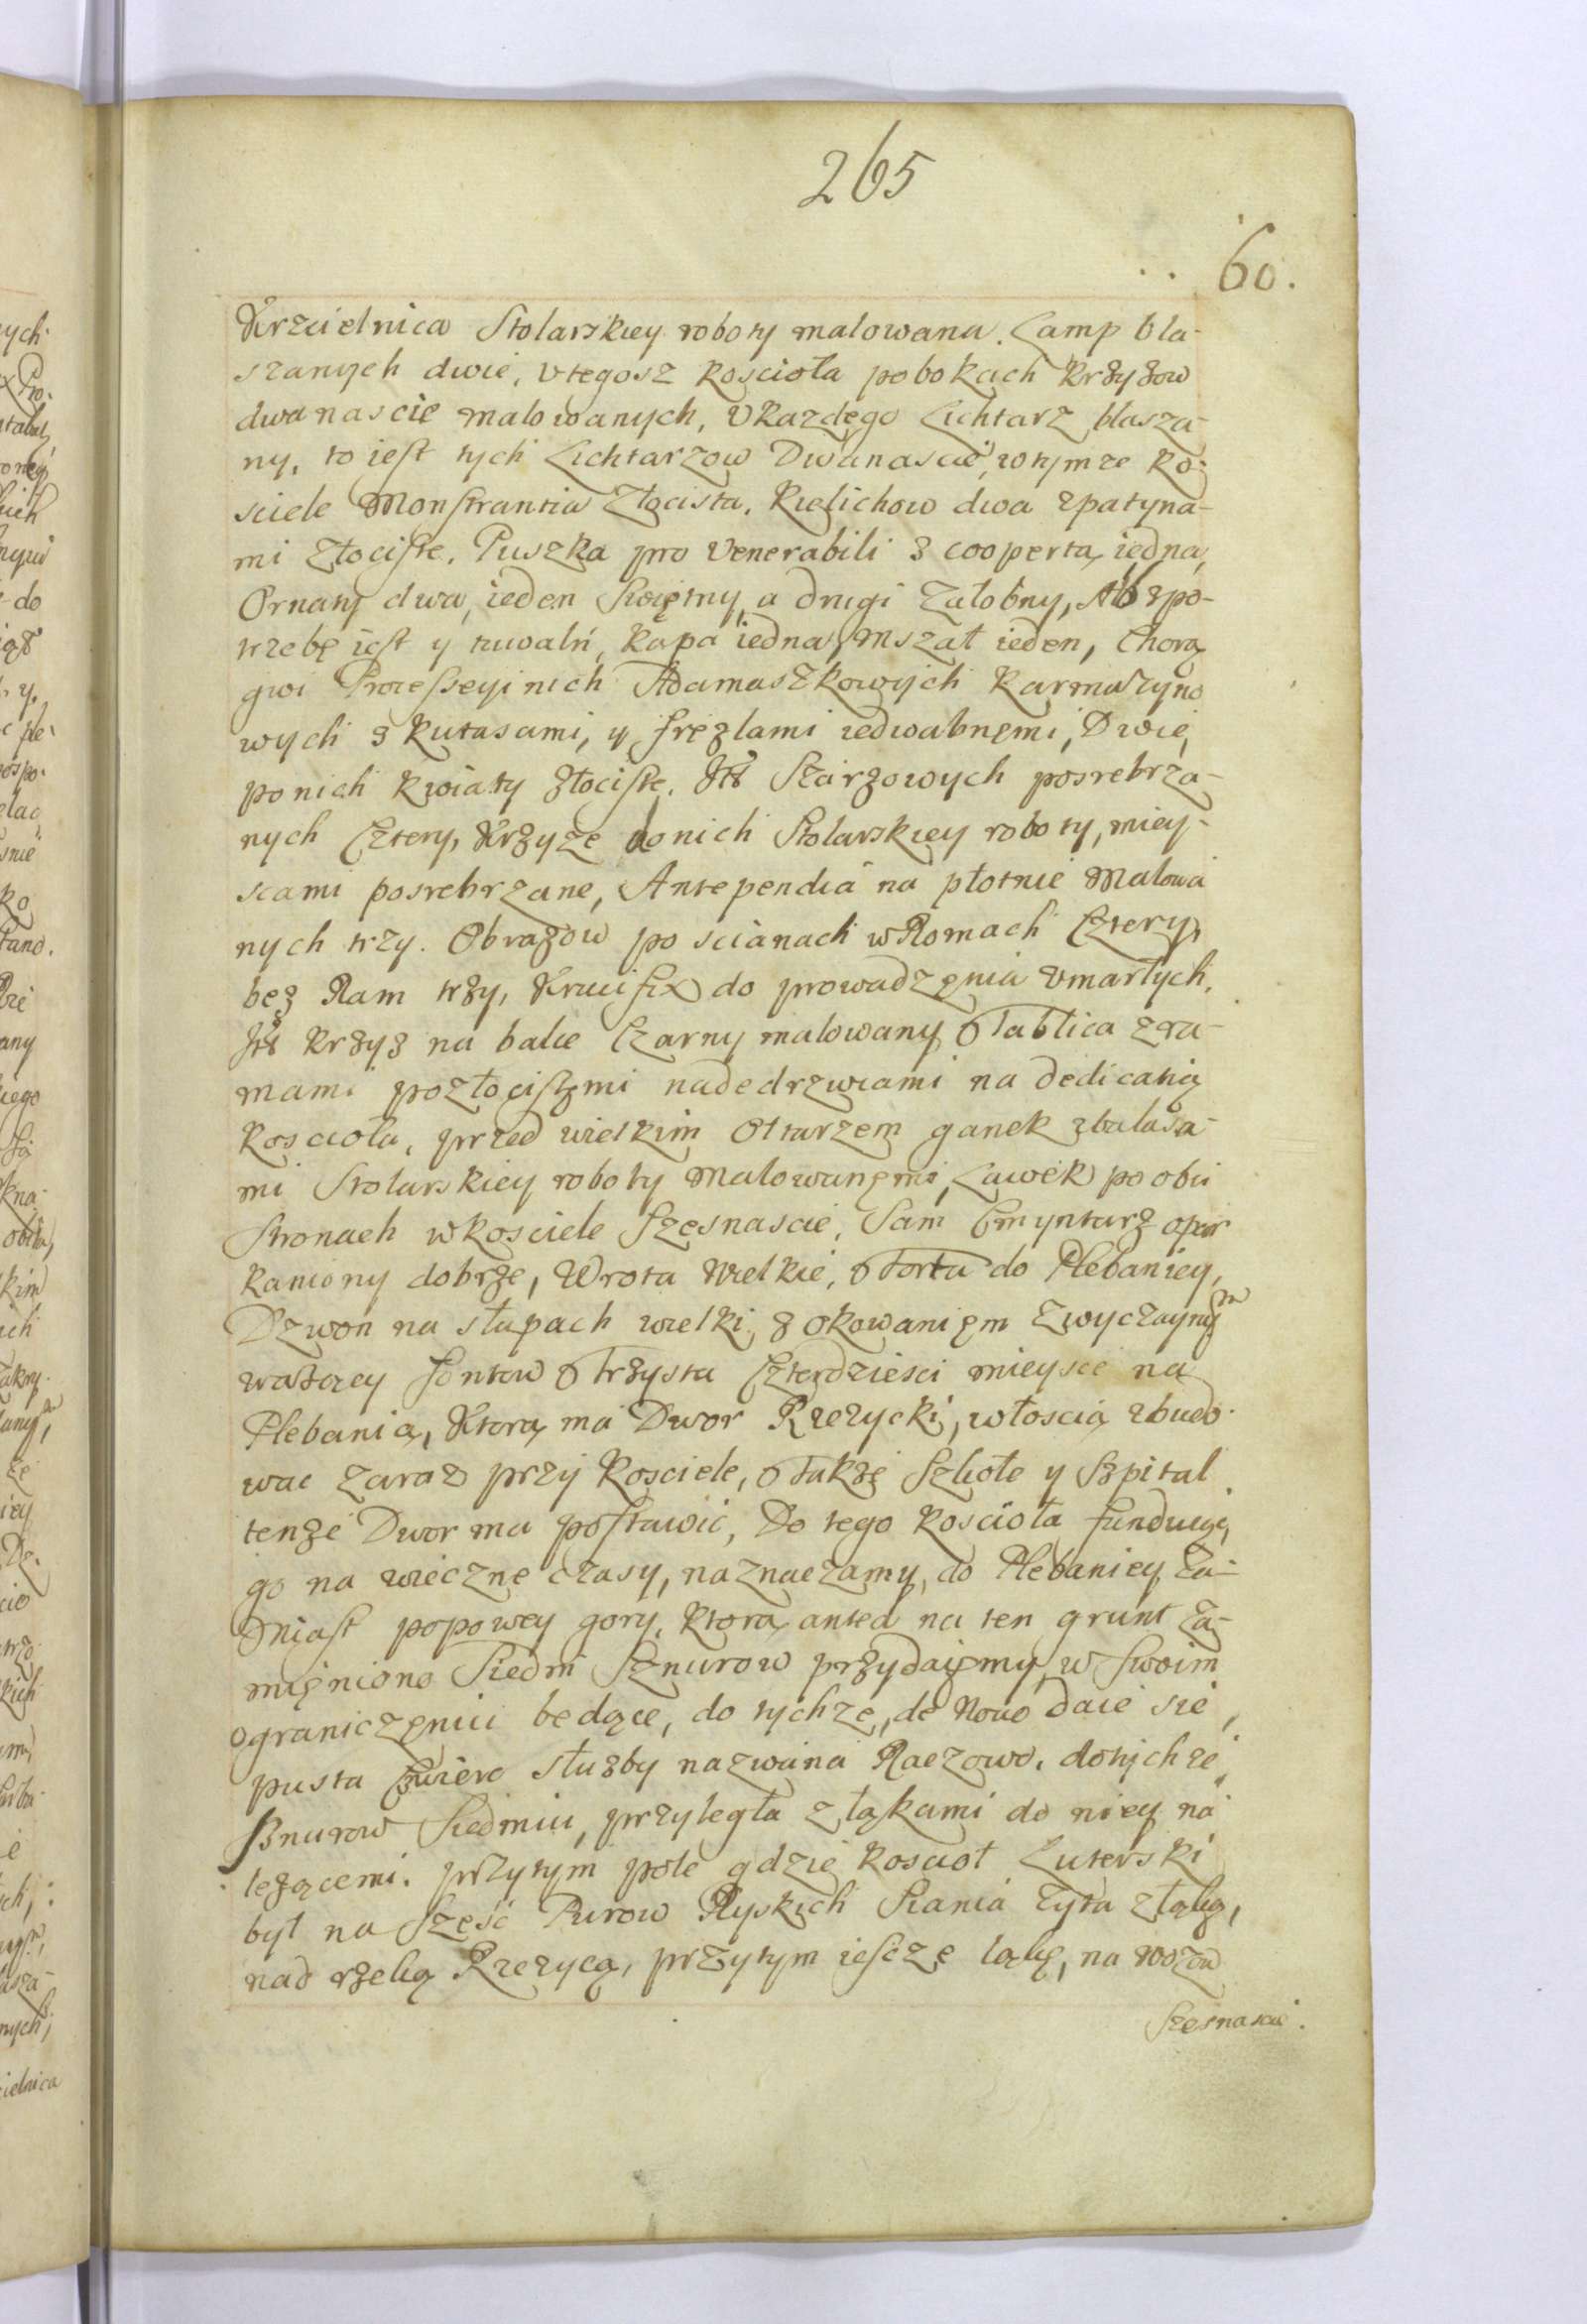 265
60.
Krzcielnica Stolarskiey roboty malowana. Lamp bla-
szanych dwie, Vtegosz Koscioła pobokach Krzyzow
dwanascie malowanych, Vkazdego Lichtarz blasza-
ny, to iest tych Lichtarzow Dwanascie, wtymze Ko-
sciele Monstrantia Złocista, Kielichow dwa zpatyna-
mi Złociste, Puszka pro Venerabili z coopertą iedna,
Ornaty dwa, ieden Swiętny, a drugi Załobny, Alb zpo-
trzebę iest y tuwalń, Kapa iedna, Mszał ieden, Chorą
gwi Processeyinich Adamaszkowych Karmazyno
wych z Kutasami, y frezlami iedwabnemi, Dwie,
ponich Kwiaty złociste. Itt Starzowych posrebrza-
nych Cztery, Krzyze do nich Stolarskiey roboty, miey-
scami posrebrzane, Antependia na płotnie Malowa
nych trzy. Obrazow po scianach w Romach Cztery,
bez Ram trzy, Krucifix do prowadzenia Vmarłych.
Itt Krzyz na balce Czarny malowany, Tablica zra-
mami pozłocistemi nadedrzwiami na dedicatią
Koscioła, przed wielkim Ołtarzem ganek zbalasa-
mi Stolarskiey roboty Malowanemi, Lawek po obu
Stronach wkosciele Szesnascie, Sam Cmyntarz opar
kaniony dobrze, Wrota Wielkie, Forta do Plebaniey,
Dzwon na słupach wielki, z okowaniem Zwyczaynym
wazącey fontow Trzysta Czterdziesci mieysce na
Plebanią, Ktorą ma Dwor Rzezycki, włoscią zbudo-
wac Zaraz przy Kosciele, Takze Szkołe y Szpital
tenze Dwor ma postawic, Do tego Koscioła funduięce
go na wieczne czasy, naznaczamy, do Plebaniey, Za-
miast popowey gory, Ktora antea na ten grunt Za-
mieniono Siedm Sznurow przydaięmy, w Swoim
ograniczeniu będące, do tychze, de Novo daie sie,
pusta Cwierc słuzby nazwana Raczowo, dotychze
Sznurow Siedmiu, przyległa z łąkami do niey na
lezącemi. przytym pole gdzie Koscioł Luterski
był na Szesc Purow Ryskich Siania Zyta z łąką,
nad rzeką Rzezycą, przytym iescze łąkę, na wozow
Szesnascie.